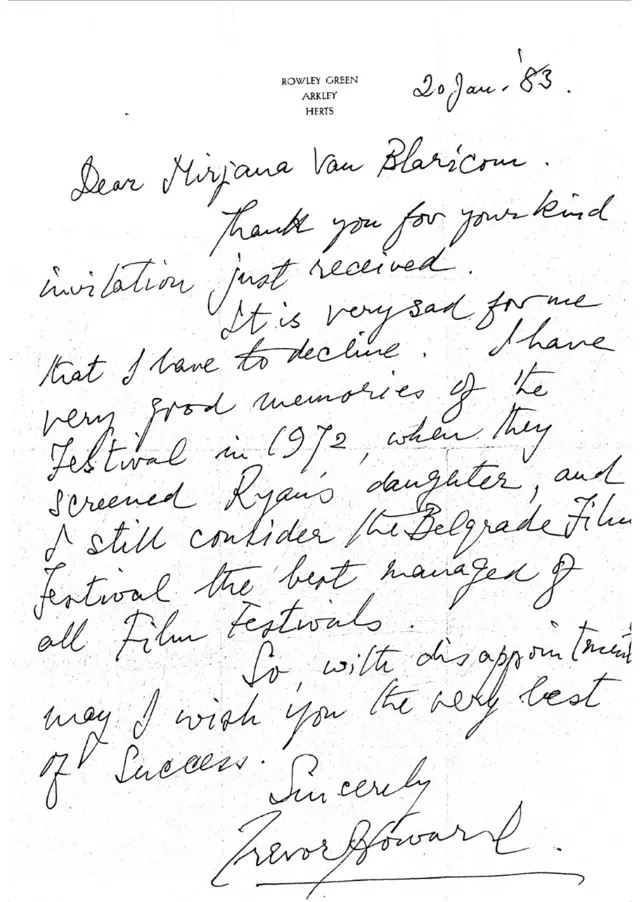 ROWLEY GREEN
ARKLEY
HERTS
20 Jan. '83.
Dear Mirjana Van Blaricom.
Thank you for your kind
invitation just received.
It is very sad for me
that I have to decline. I have
very good memories of the
Festival in 1972, when they
screened Ryan's daughter, and
I still consider the Belgrade Film
Festival the best managed of
all Film Festivals.
So, with disappointment
may I wish you the very best
of Success.
Sincerely
Trevor Howard.